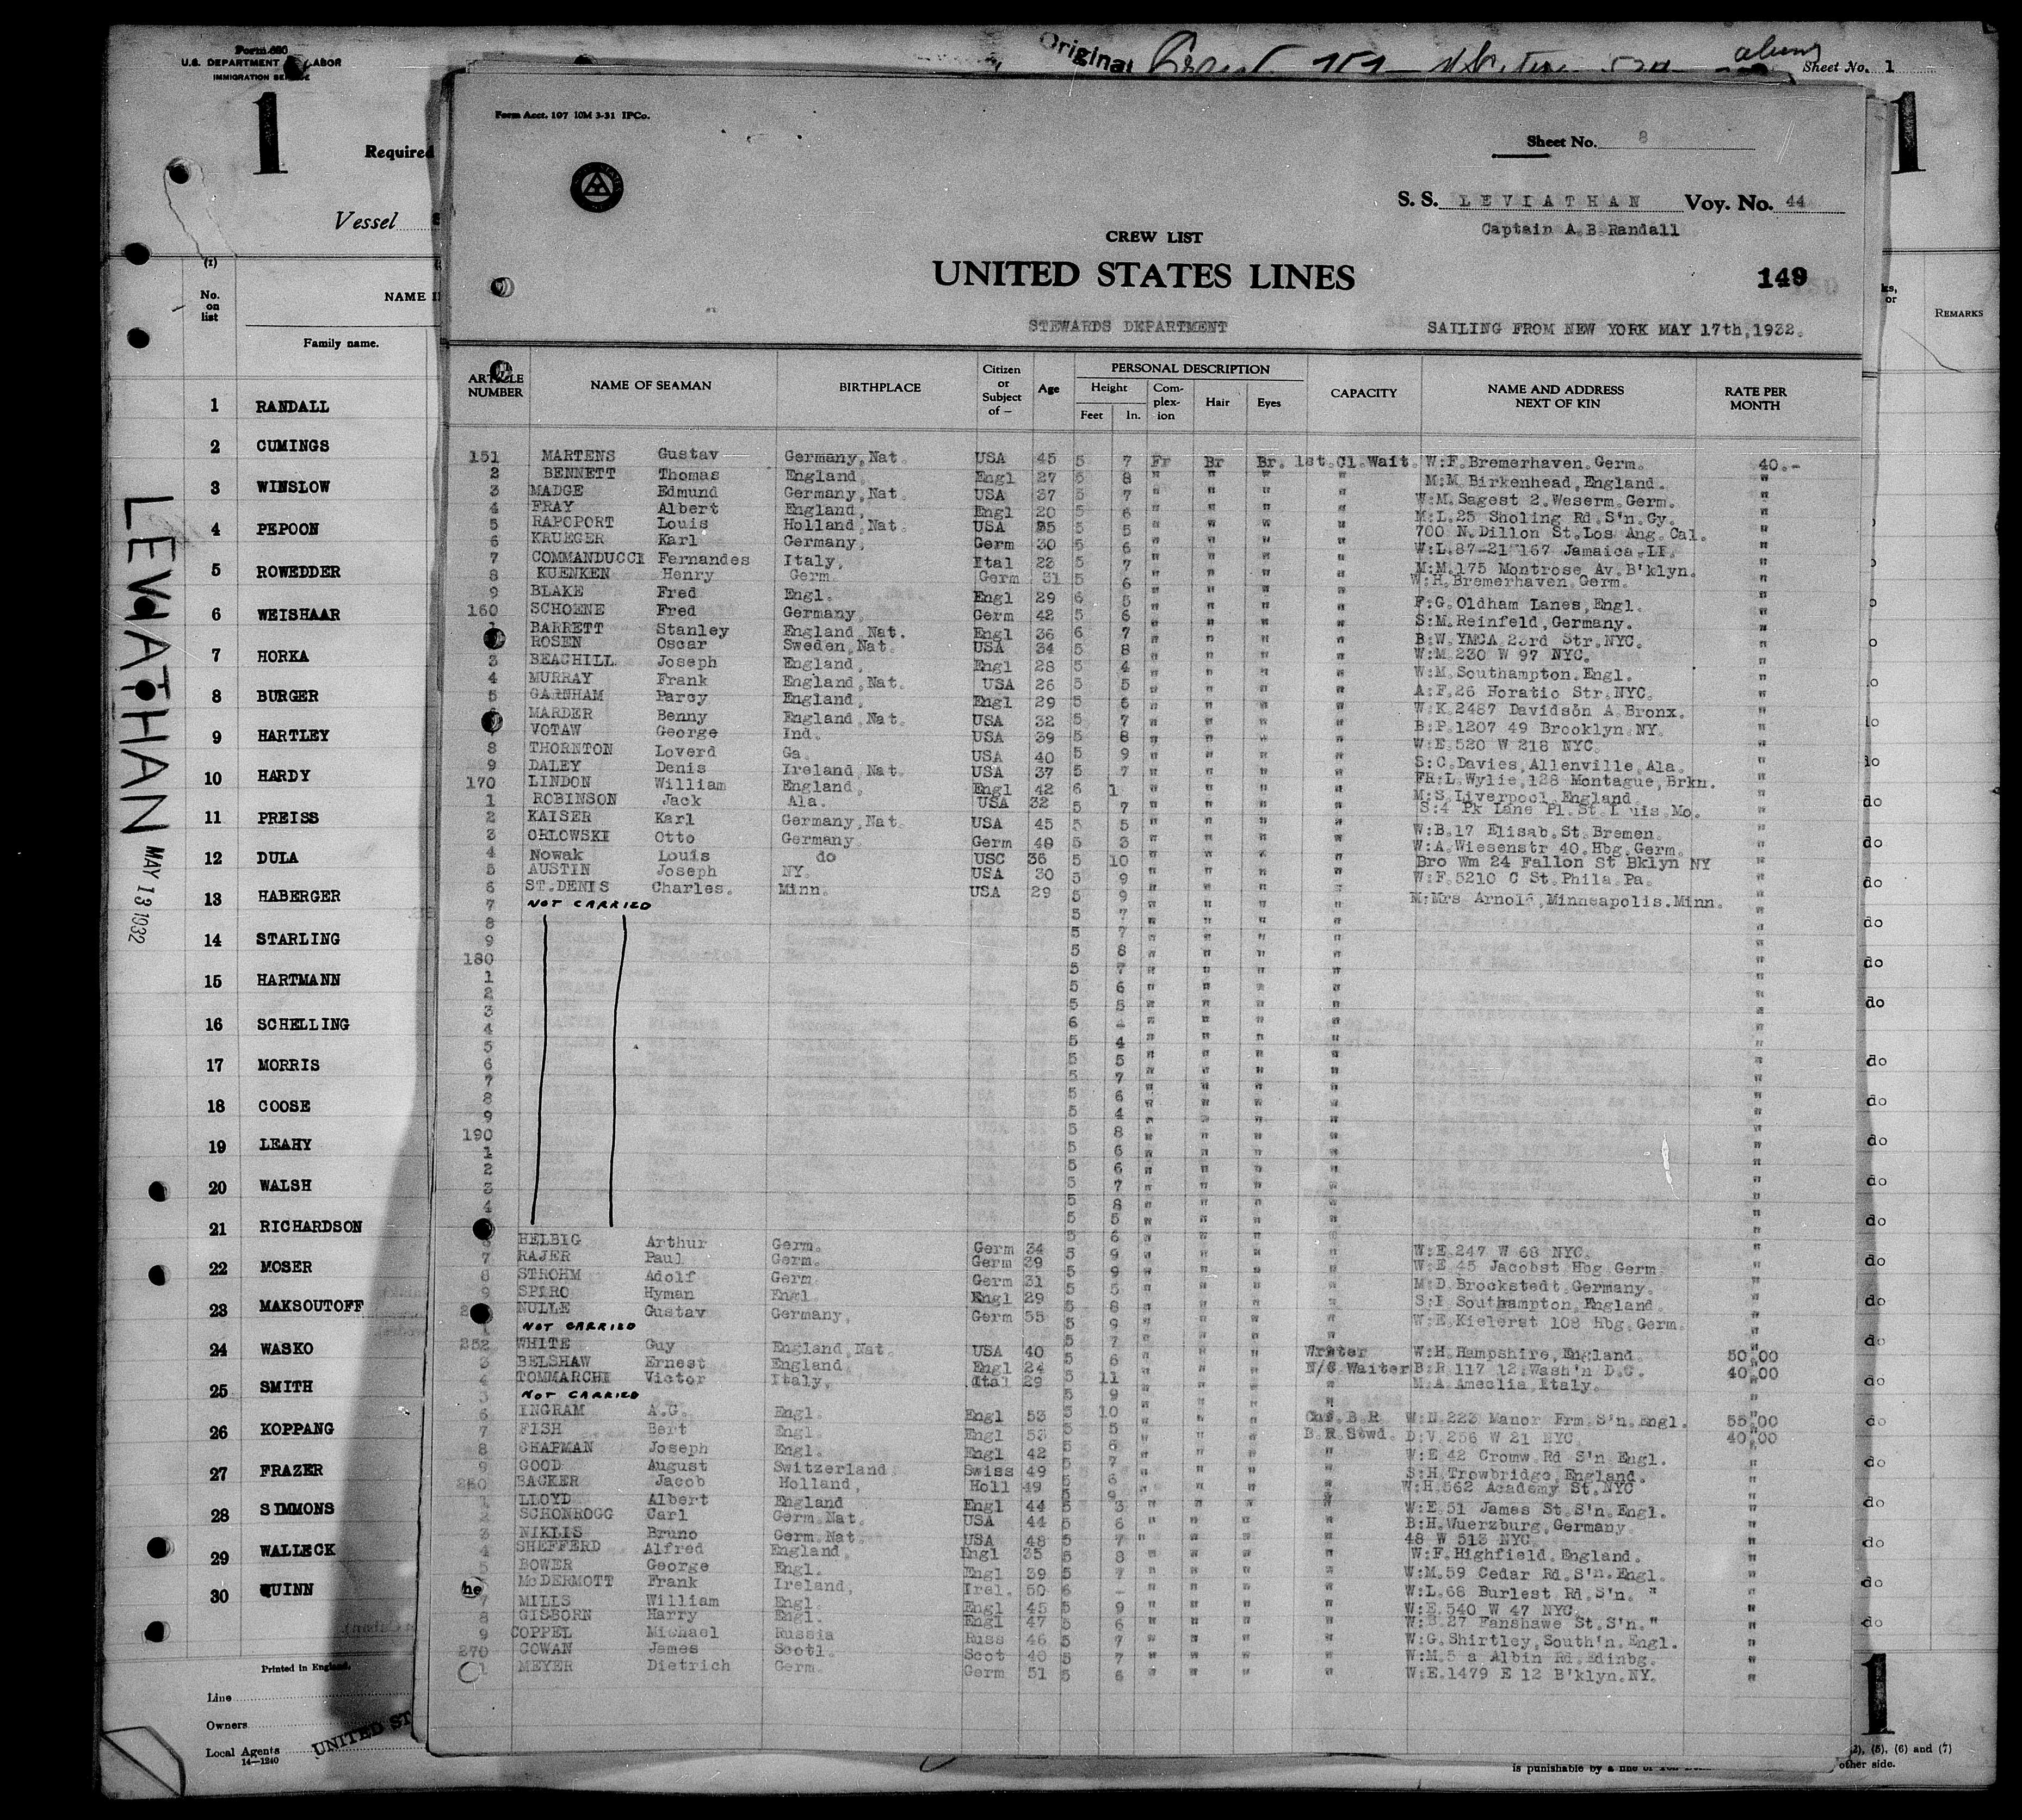 Form 680
U.S. DEPARTMENT LABOR
IMMIGRATION SERVICE
1
Required
Vessel
Original
Sheet No. 1
1
(1)
No. on list
NAME I
Family name.
REMARKS
1 RANDALL
2 CUMINGS
3 WINSLOW
4 PEPOON
5 ROWEDDER
6 WEISHAAR
7 HORKA
8 BURGER
9 HARTLEY
10 HARDY
11 PREISS
12 DULA
13 HABERGER
14 STARLING
15 HARTMANN
16 SCHELLING
17 MORRIS
18 COOSE
19 LEAHY
20 WALSH
21 RICHARDSON
22 MOSER
23 MAKSOUTOFF
24 WASKO
25 SMITH
26 KOPPANG
27 FRAZER
28 SIMMONS
29 WALLECK
30 QUINN
Printed in England.
Line
Owners
Local Agents
14—1240
UNITED ST
LEVIATHAN MAY 13 1932
Form Acct. 107 10M 3-31 IPCo.
Sheet No. 8
S. S. LEVIATHAN Voy. No. 44
Captain A.B.Randall
CREW LIST
UNITED STATES LINES
149
STEWARDS DEPARTMENT
SAILING FROM NEW YORK MAY 17th,1932.
ARTICLE NUMBER NAME OF SEAMAN BIRTHPLACE Citizen or Subject of — Age PERSONAL DESCRIPTION CAPACITY NAME AND ADDRESS NEXT OF KIN RATE PER MONTH
Height Feet In. Com-plex-ion Hair Eyes
151 MARTENS Gustav Germany,Nat. USA 45 5 7 Fr Br Br. 1st.Cl.Wait. W:F.Bremerhaven.Germ. 40.-
2 BENNETT Thomas England. Engl 27 5 8 " " " " M:M.Birkenhead,England. "
3 MADGE Edmund Germany,Nat. USA 37 5 7 " " " " W:M.Sagest 2.Weserm.Germ. "
4 FRAY Albert England, Engl 20 5 6 " " " " M:L.25 Sholing Rd.S'n.Gy. "
5 RAPOPORT Louis Holland,Nat. USA 35 5 5 " " " " 700 N.Dillon St.Los Ang.Cal. "
6 KRUEGER Karl Germany, Germ 30 5 6 " " " " W:L.87-21 167 Jamaica.LI. "
7 COMMANDUCCI Fernandes Italy, Ital 23 5 7 " " " " M:M.175 Montrose Av.B'klyn. "
8 KUENKEN Henry Germ. Germ 31 5 6 " " " " W:H.Bremerhaven.Germ. "
9 BLAKE Fred Engl. Engl 29 6 5 " " " " F:G.Oldham Lanes,Engl. "
160 SCHOENE Fred Germany, Germ 42 5 6 " " " " S:M.Reinfeld,Germany. "
1 BARRETT Stanley England,Nat. Engl 36 6 7 " " " " B:W.YMCA 23rd Str.NYC. "
ROSEN Oscar Sweden,Nat. USA 34 5 8 " " " " W:M.230 W 97 NYC. "
3 BEACHILL Joseph England, Engl 28 5 4 " " " " W:M.Southampton.Engl. "
4 MURRAY Frank England,Nat. USA 26 5 5 " " " " A:F.26 Horatio Str.NYC. "
5 GARNHAM Parcy England, Engl 29 5 6 " " " " W:K.2487 Davidson A.Bronx. "
MARDER Benny England,Nat. USA 32 5 7 " " " " B:P.1207 49 Brooklyn.NY. "
VOTAW George Ind. USA 39 5 8 " " " " W:E.520 W 218 NYC. "
8 THORNTON Loverd Ga. USA 40 5 9 " " " " S:C.Davies,Allenville,Ala. "
9 DALEY Denis Ireland,Nat. USA 37 5 7 " " " " FR:L.Wylie,128 Montague,Brkn. "
170 LINDON William England, Engl 42 6 1 " " " " M:S.Liverpool,England. "
1 ROBINSON Jack Ala. USA 32 5 7 " " " " S:4 Pk Lane Pl.St.Louis.Mo. "
2 KAISER Karl Germany,Nat. USA 45 5 5 " " " " W:B.17 Elisab.St.Bremen. "
3 ORLOWSKI Otto Germany. Germ 40 5 3 " " " " W:A.Wiesenstr 40.Hbg.Germ. "
4 Nowak Louis do USC 36 5 10 " " " " Bro Wm 24 Fallon St Bklyn NY "
5 AUSTIN Joseph NY. USA 30 5 9 " " " " W:F.5210 C St.Phila.Pa. "
6 ST.DENIS Charles. Minn. USA 29 5 9 " " " " M:Mrs Arnold,Minneapolis.Minn. "
7 NOT CARRIED 5 7 " " " " "
8 5 7 " " " " "
9 5 8 " " " " "
180 5 7 " " " " "
1 5 6 " " " " "
2 5 5 " " " " "
3 6 - " " " " "
4 5 4 " " " " "
5 5 5 " " " " "
6 5 7 " " " " "
7 5 6 " " " " "
8 5 4 " " " " "
9 5 8 " " " " "
190 5 6 " " " " "
1 5 6 " " " " "
2 5 7 " " " " "
3 5 8 " " " " "
4 5 5 " " " " "
HELBIG Arthur Germ. Germ 34 5 6 " " " " W:E.247 W 68 NYC. "
7 RAJER Paul Germ. Germ 39 5 9 " " " " W:E.45 Jacobst Hbg Germ. "
8 STROHM Adolf Germ. Germ 31 5 9 " " " " M:D.Brockstedt,Germany. "
9 SPIRO Hyman Engl. Engl 29 5 5 " " " " S:I Southampton,England. "
NULLE Gustav Germany, Germ 55 5 8 " " " " W:E.Kielerst 108 Hbg.Germ. "
1 NOT CARRIED 5 9 " " " "
252 WHITE Guy England,Nat. USA 40 5 7 " " " Writer W:H.Hampshire,England. 50.00
3 BELSHAW Ernest England Engl 24 5 6 " " " N/C.Waiter B:R.117 12.Wash'n D.C. 40.00
4 TOMMARCHI Victor Italy, Ital 29 5 11 " " " " M:A.Ameclia,Italy. "
5 NOT CARRIED 5 9 " " "
6 INGRAM A.G. Engl. Engl 53 5 10 " " " Chf.B.R. W:N.223 Manor Frm.S'n.Engl. 55.00
7 FISH Bert Engl. Engl 53 5 5 " " " B.R.Stwd. D:V.256 W 21 NYC. 40.00
8 CHAPMAN Joseph Engl. Engl 42 5 6 " " " " W:E.42 Cromw.Rd S'n.Engl. "
9 GOOD August Switzerland Swiss 49 5 7 " " " " S:H.Trowbridge,England. "
260 BACKER Jacob Holland, Holl 49 5 6 " " " " W:H.562 Academy St.NYC "
1 LLOYD Albert England Engl 44 5 3 " " " " W:E.51 James St.S'n.Engl. "
2 SCHONROGG Carl Germ.Nat. USA 44 5 6 " " " " B:H.Wuerzburg,Germany. "
3 NIKLIS Bruno Germ.Nat. USA 48 5 7 " " " " 48 W 513 NYC. "
4 SHEFFERD Alfred England. Engl 35 5 8 " " " " W:F.Highfield.England. "
5 BOWER George Engl. Engl 39 5 7 " " " " W:M.59 Cedar Rd.S'n.Engl. "
he McDERMOTT Frank Ireland, Irel. 50 6 - " " " " W:L.68 Burlest.Rd.S'n. " "
7 MILLS William Engl. Engl 45 5 9 " " " " W:E.540 W 47 NYC. "
8 GISBORN Harry Engl. Engl 47 5 6 " " " " W:B.27 Fanshawe St.S'n." "
9 COPPEL Michael Russia Russ 46 5 7 " " " " W:G.Shirtley,South'n.Engl. "
270 COWAN James Scotl. Scot 40 5 7 " " " " W:M.5 a Albin Rd.Edinbg. "
1 MEYER Dietrich Germ. Germ 51 5 6 " " " " W:E.1479 E 12 B'klyn.NY. "
do
do
do
do
do
do
do
do
do
do
do
do
do
do
do
do
do
1
(5), (6) and (7)
is punishable by a fine of
other side.